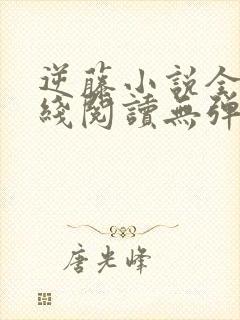 逆藤小説全
綫閱讀無彈
唐光峰